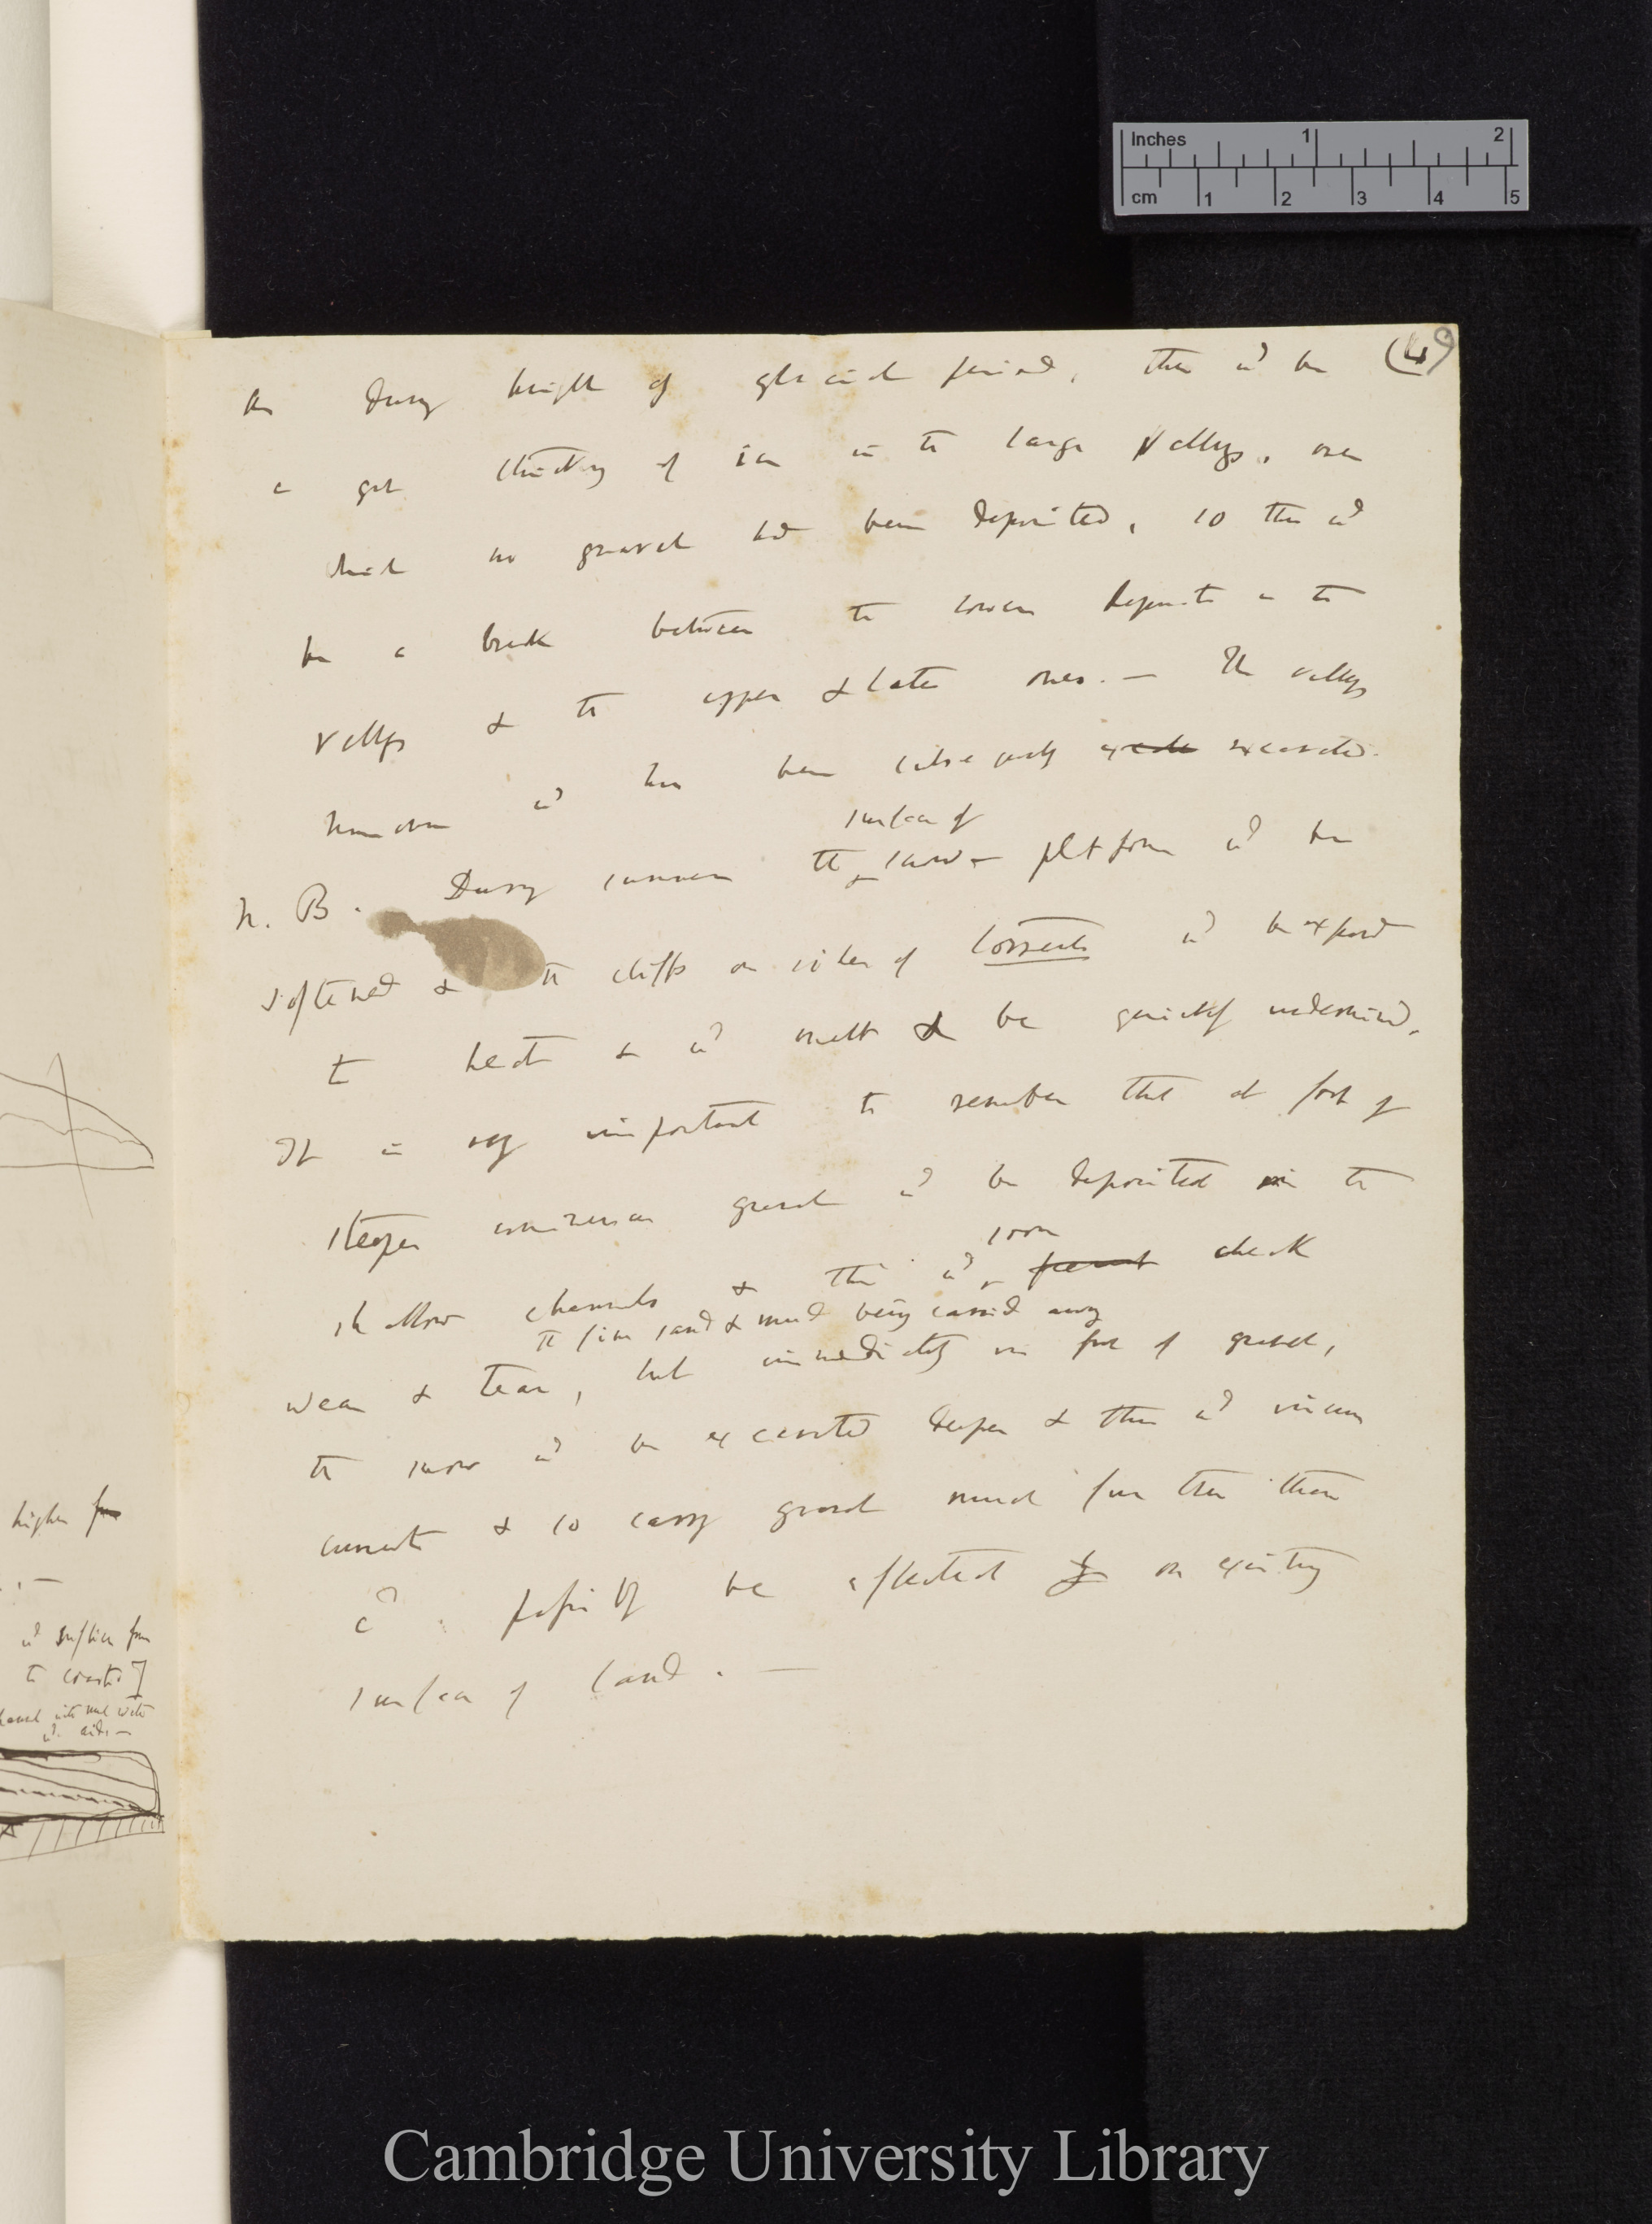 Inches 1 2
cm 1 2 3 4 5
(4) 9
During height of glacial period, there wd be
a grt thickness of ice in the large Valleys, over
which no gravel hd been deposited, so there wd
be a break between the lower deposits in the
valleys & the upper & later ones. — The valleys
however wd have been subsequently excavated.
surface of
N. B. During summer the snow-platform wd be
softened & the cliffs on sides of torrents wd be exposed
to heat & wd melt & be quickly undermined.
It is very important to remember that at foot of
steeper inclination gravel wd be deposited in the
soon
shallow channels & this wd check
the fine sand & mud being carried away
wear & tear, but immediately in front of gravel,
the snow wd be excavated deeper & then wd increase
current & so carry gravel much further than
cd possibly be effected on existing
surface of land. —
higher
wd suffice from
the coasts]
wd aid. —
Cambridge University Library